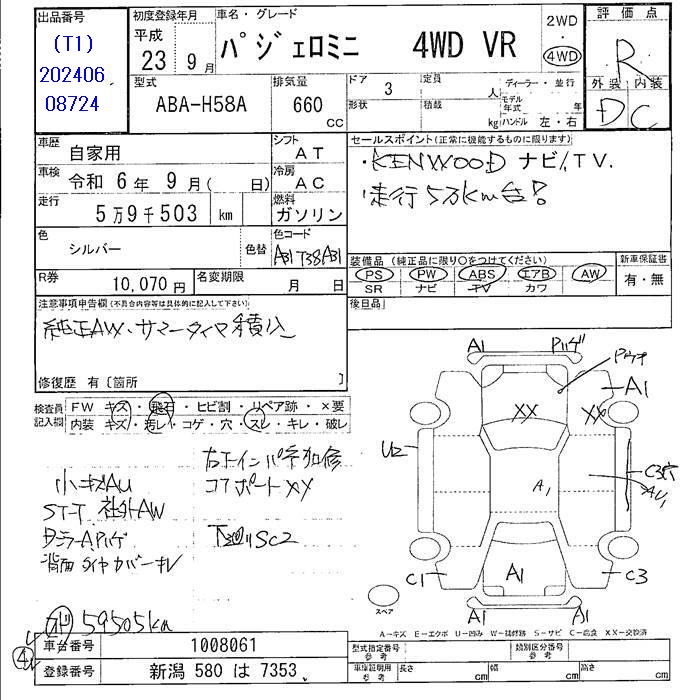 出品番号
(T1)
202406
08724
初度登録年月
平成
23年 9月
車名・グレード
パジェロミニ 4WD VR
2WD
・
4WD
評価点
R
外装 内装
D C
型式
ABA-H58A
排気量
660
CC
ドア
3
形状
定員
人
積載
kg
ディーラー・並行
モデル年式 年
ハンドル 左・右
車歴
自家用
シフト
AT
車検
令和 6年 9月( 日)
冷房
AC
走行
5万9千503 km
燃料
ガソリン
色
シルバー
色替
色コード
A31 T38A31
R券
10,070円
名変期限
月 日
セールスポイント(正常に機能するものに限ります)
・KENWOOD ナビ/TV.
・走行5万km台!
装備品(純正品に限り○をつけてください)
PS PW ABS エアB AW
SR ナビ TV カワ
新車保証書
有・無
後日品
注意事項申告欄(不具合内容等は具体的に記入して下さい)
純正AW・サマータイヤ積込
修復歴 有〔箇所 〕
検査員記入欄
FW キズ・飛石・ヒビ割・リペア跡・×要
内装 キズ・汚レ・コゲ・穴・スレ・キレ・破レ
小キズAU
ST-T 社外AW
背面タイヤカバーキレ
右Fインパネ交加修
コアポートXX
下廻りSC2
59505km
A1
Pハゲ
A1
XX
XX
U2
A1
C1
A1
C3
A1
A1
スペア
A-キズ E-エクボ U-凹み W-補修跡 S-サビ C-腐食 XX-交換済
4
車台番号
1008061
登録番号
新潟 580 は 7353
型式指定番号
参考
類別区分番号
参考
車庫証明用
参考
長さ
cm
幅
cm
高さ
cm